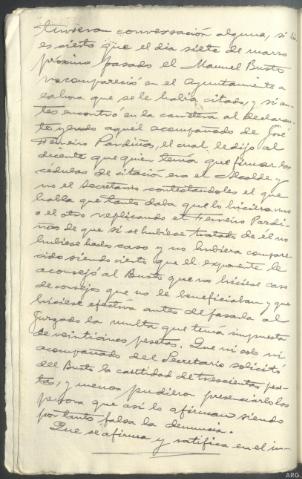 tuvieran conversación alguna, si bien
es cierto que el dia siete de marzo
próximo pasado el Manuel Busto
compareció en el Ayuntamiento a
la hora que se le había citado, y si an-
tes encontró en la carretera al declaran-
te yendo aquel acompañado de José
Ferreiro Pardiñas, el cual le dijo al
dicente que quien tenía que firmar las
cédulas de citación era el Alcalde y
no el Secretario contestandoles el que
habla que tanto daba que lo hiciera uno
o el otro replicando el Ferreiro Pardi-
ñas de que si se hubiese tratado de él no
hubiese hecho caso y no hubiera compare-
cido siendo cierto que el exponente le
aconsejó al Busto que no hiciese caso
de consejos que no le beneficiaban y que
hiciese efectiva antes de pasarla al
Juzgado la multa que tenía impuesta
de veinticinco pesetas. Que ni solo ni
acompañado del Secretario solicitó
del Busto la cantidad de trescientas pese-
tas, y menos pudieron presenciarlo las
personas que así lo afirman siendo
por tanto falsa la denuncia.
Que se afirma y ratifica en el in-
ARG